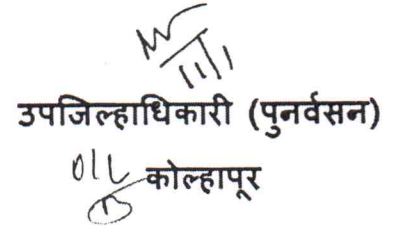 उपजिल्हाधिकारी (पुनर्वसन)
कोल्हापूर